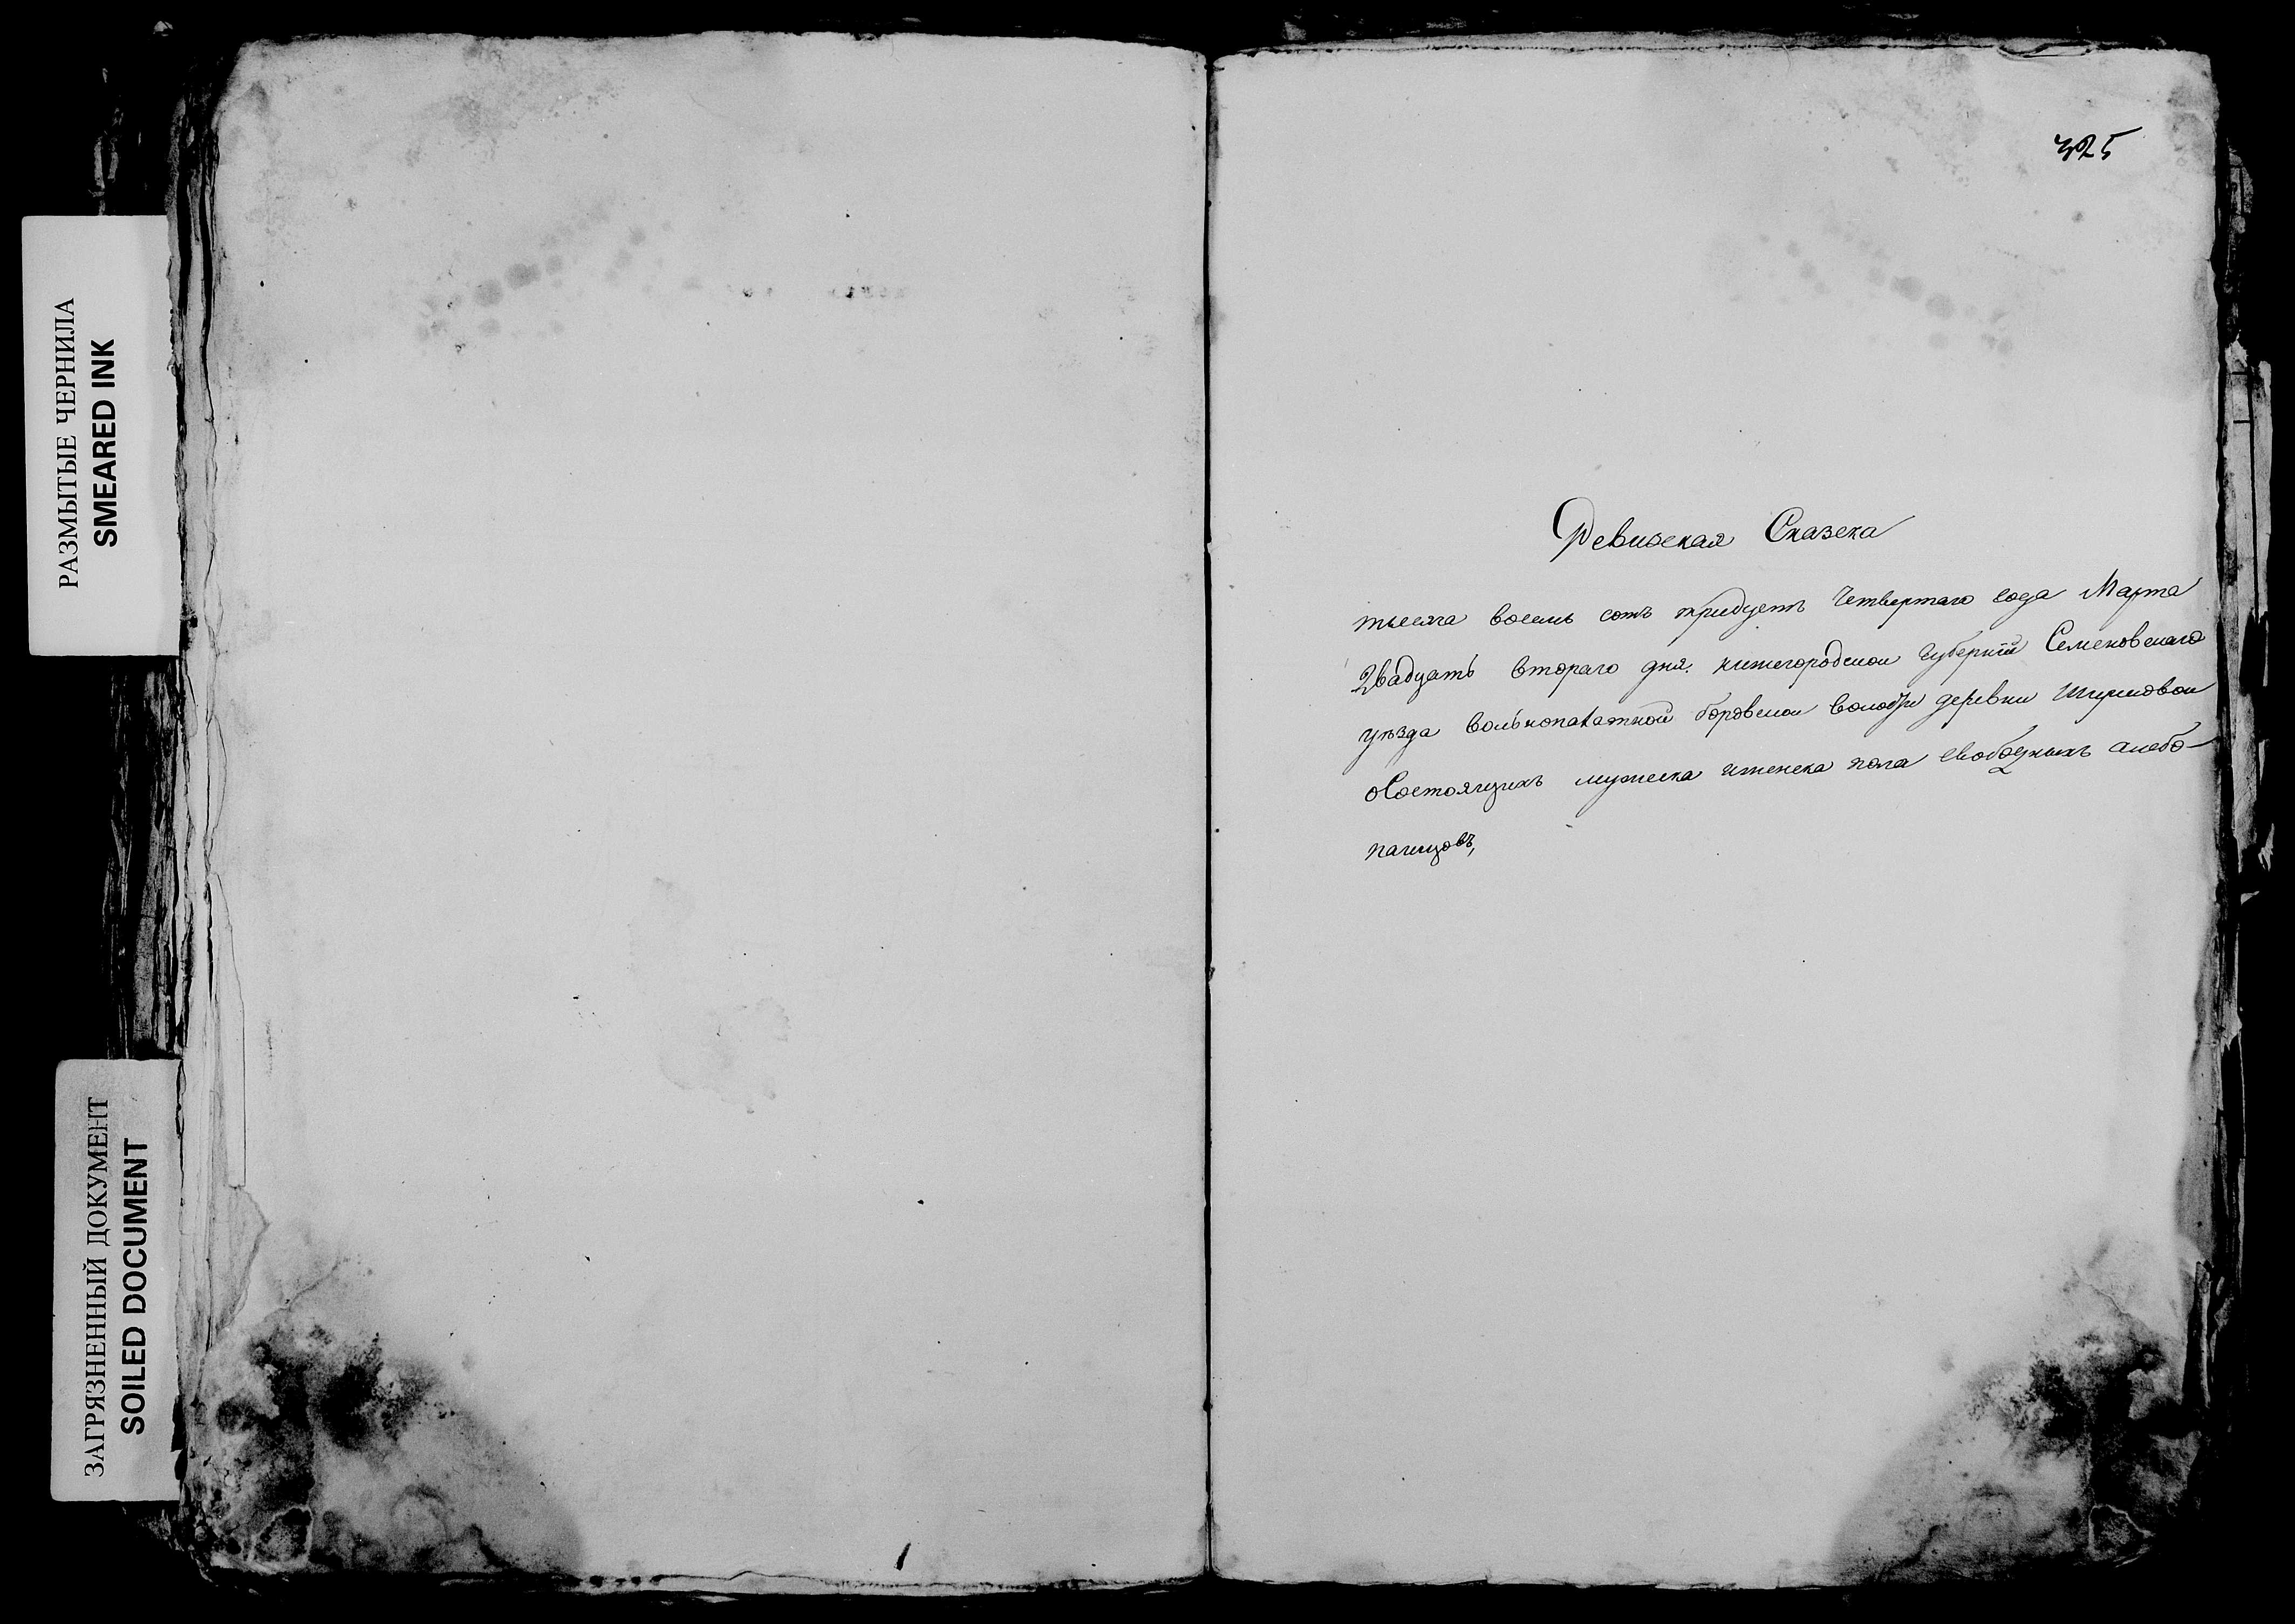 РАЗМЫТЫЕ ЧЕРНИЛА
SMEARED INK
ЗАГРЯЗНЕННЫЙ ДОКУМЕНТ
SOILED DOCUMENT
325
Ревиская Сказска
тысяча восемь сотъ тридцеть Четвертаго года Марта
Двадцать втораго дня. нижегородской Губернiи Семеновскаго
уѣзда вольнопахатной боровской волости деревни
оСостоящихъ мужеска иженска пола свободныхъ хлебо-
пашцовъ,